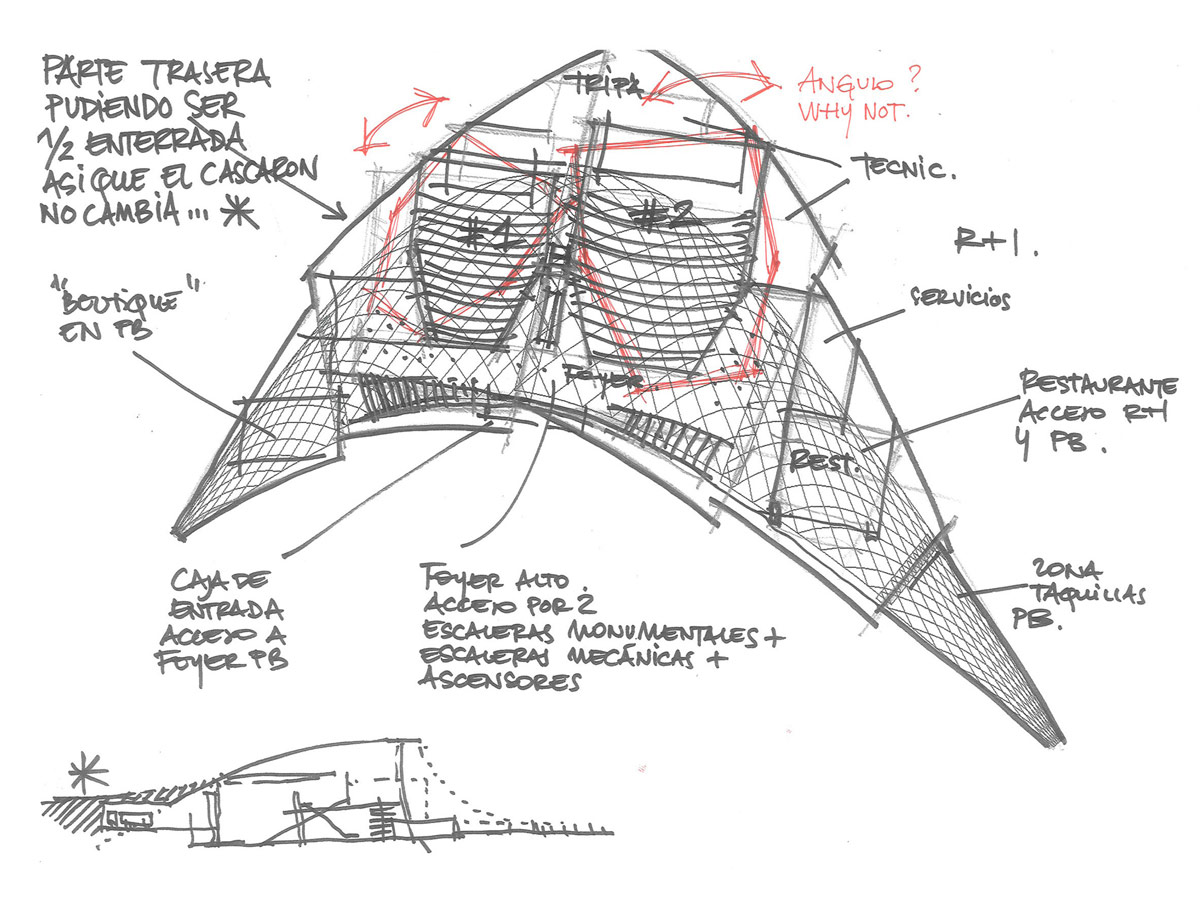 PARTE TRASERA
PUDIENDO SER
1/2 ENTERRADA
ASI QUE EL CASCARON
NO CAMBIA... *
TRIPA
ANGULO ?
WHY NOT.
TECNIC.
#1
#2
R+1.
"BOUTIQUE"
EN PB
SERVICIOS
FOYER
RESTAURANTE
ACCESO R+1
Y PB.
REST.
CAJA DE
ENTRADA
ACCESO A
FOYER PB
FOYER ALTO.
ACCESO POR 2
ESCALERAS MONUMENTALES +
ESCALERAS MECÁNICAS +
ASCENSORES
ZONA
TAQUILLAS
PB.
*